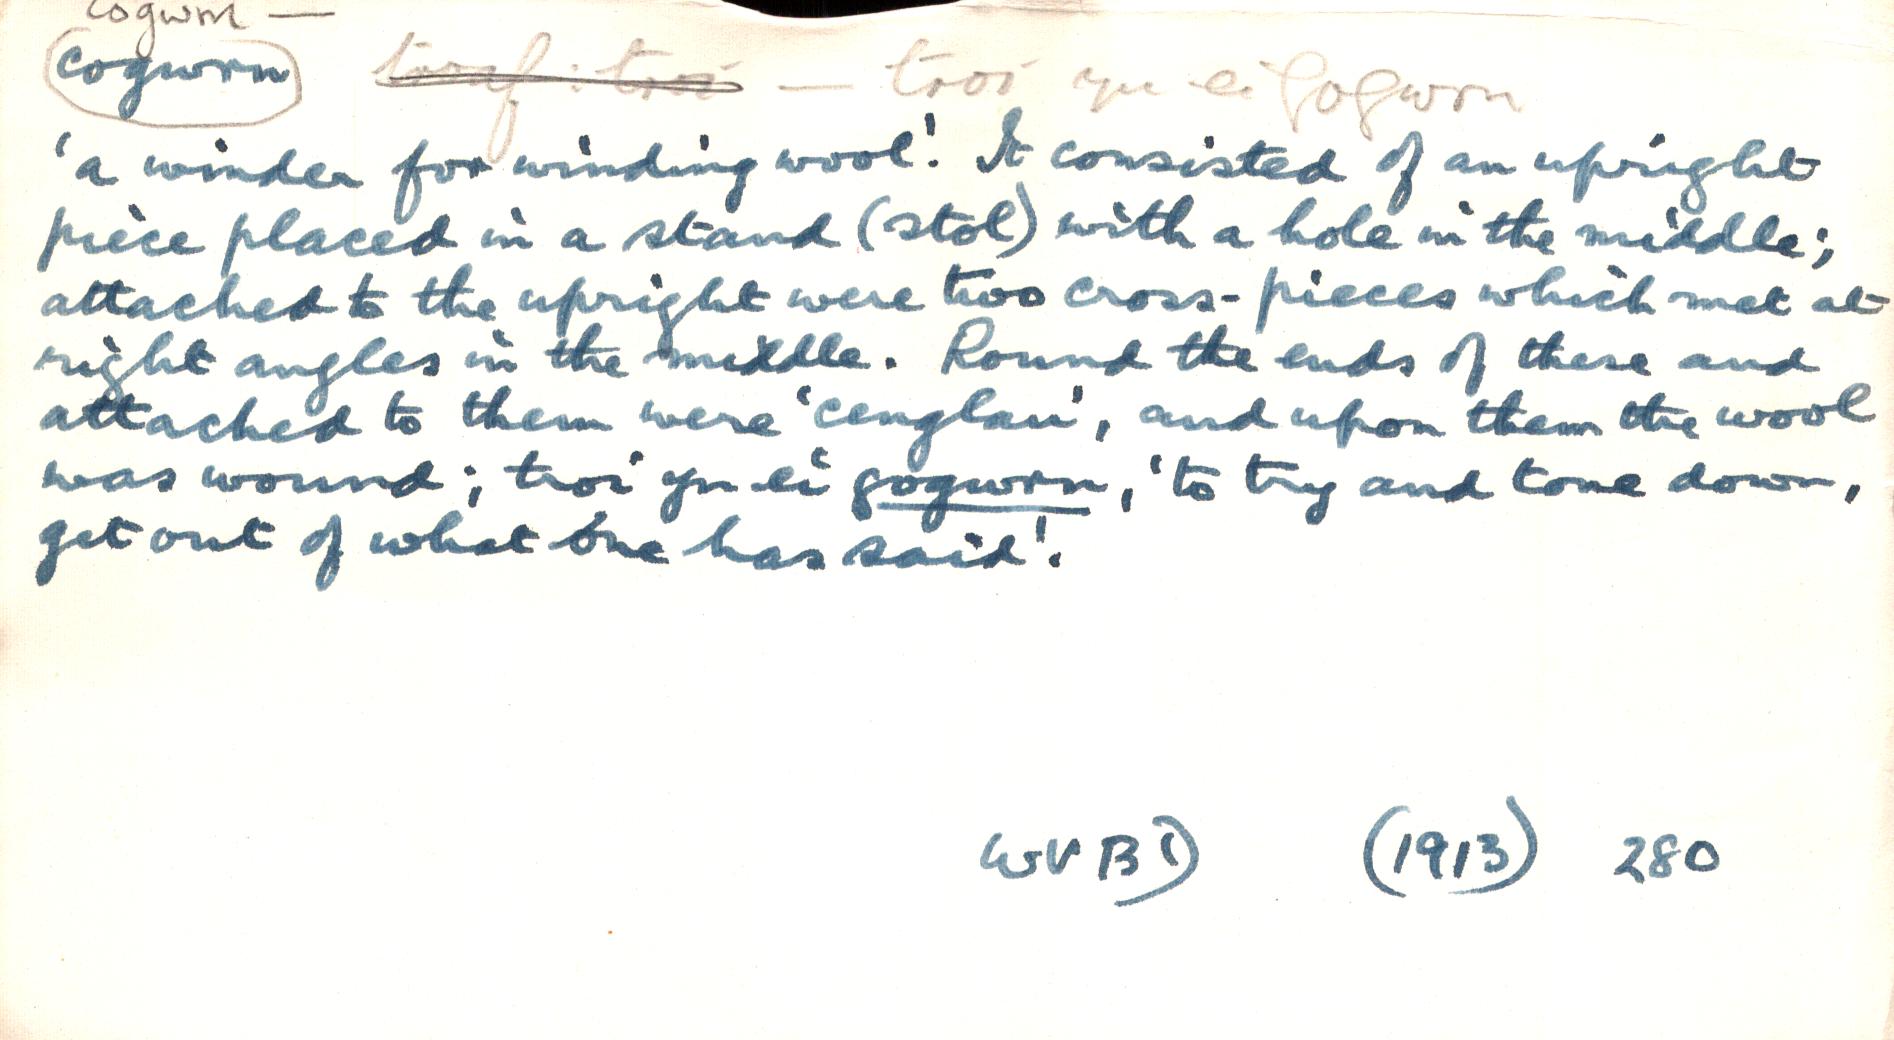 cogwrn —
cogwrn — troi yn ei gogwrn
'a winder for winding wool'. It consisted of an upright
piece placed in a stand (stôl) with a hole in the middle;
attached to the upright were two cross-pieces which met at
right angles in the middle. Round the ends of these and
attached to them were 'cenglau', and upon them the wool
was wound; troi yn ei gogwrn, 'to try and tone down,
get out of what one has said'.
WVBD (1913) 280